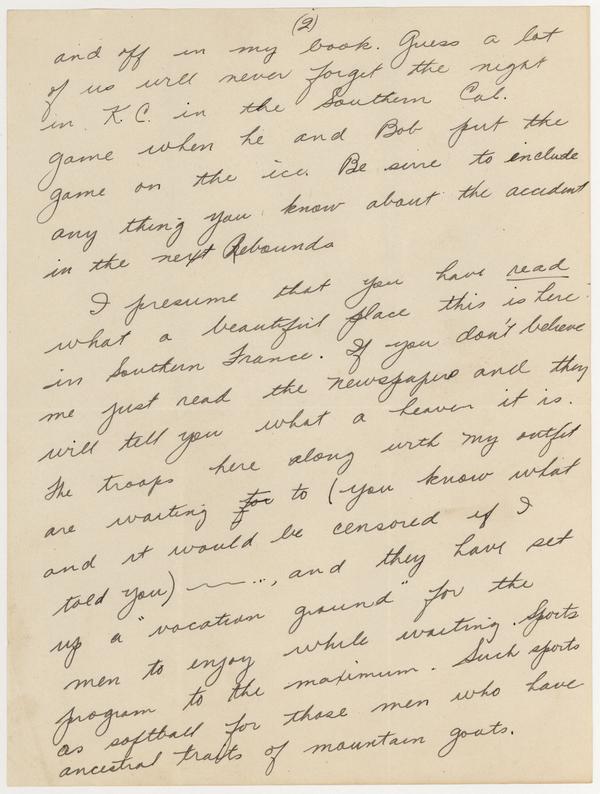 (2)
and off in my book. Guess a lot
of us will never forget the night
in K.C. in the Southern Cal.
game when he and Bob put the
game on the ice. Be sure to include
any thing you know about the accident
in the next Rebounds
I presume that you have read
what a beautiful place this is here
in Southern France. If you don't believe
me just read the newspapers and they
will tell you what a heaven it is.
The troops here along with my outfit
are waiting for to (you know what
and it would be censored if I
told you) ~~~..., and they have set
up a "vacation ground" for the
men to enjoy while waiting. Sports
program to the maximum. Such sports
as softball for those men who have
ancestral traits of mountain goats.